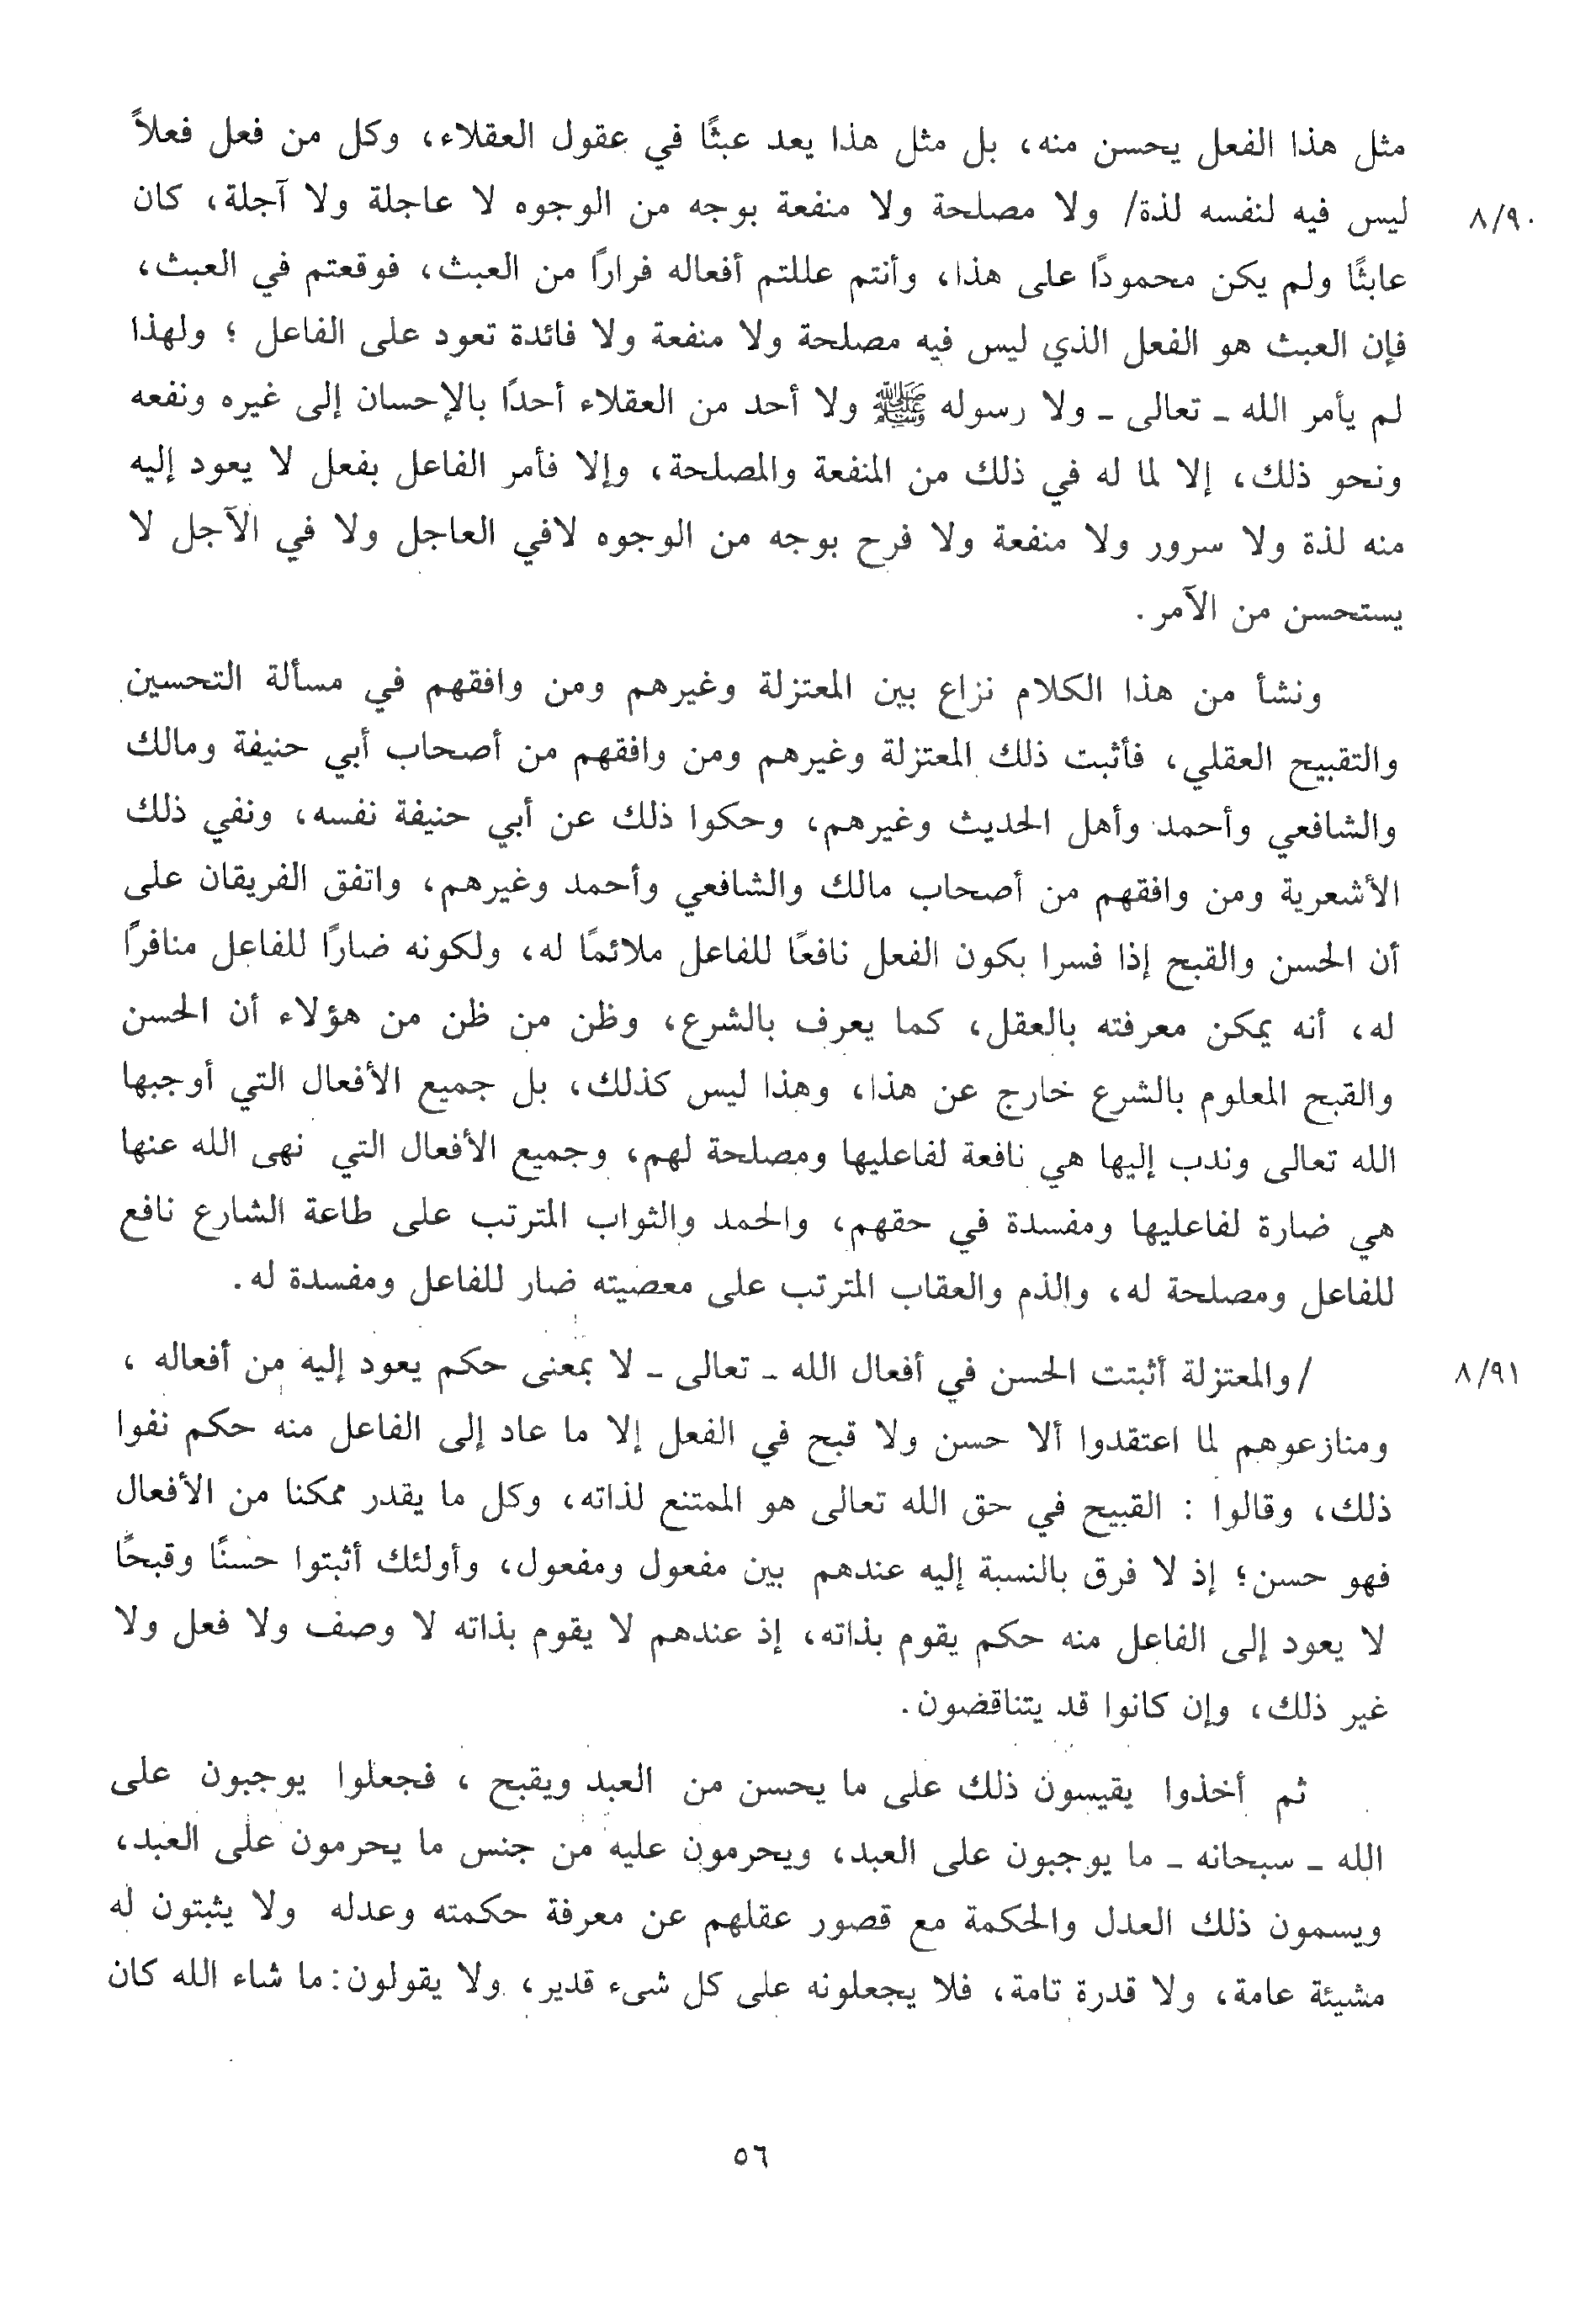 مثل هذا الفعل يحسن منه، بل مثل هذا يعد عبثًا في عقول العقلاء، وكل من فعل فعلاً
ليس فيه لنفسه لذة/ ولا مصلحة ولا منفعة بوجه من الوجوه لا عاجلة ولا آجلة، كان
٨/٩٠
عابثًا ولم يكن محمودًا على هذا، وأنتم عللتم أفعاله فرارًا من العبث، فوقعتم في العبث،
فإن العبث هو الفعل الذي ليس فيه مصلحة ولا منفعة ولا فائدة تعود على الفاعل ؛ ولهذا
لم يأمر الله ـ تعالى ـ ولا رسوله ﷺ ولا أحد من العقلاء أحدًا بالإحسان إلى غيره ونفعه
ونحو ذلك، إلا لما له في ذلك من المنفعة والمصلحة، وإلا فأمر الفاعل بفعل لا يعود إليه
منه لذة ولا سرور ولا منفعة ولا فرح بوجه من الوجوه لافي العاجل ولا في الآجل لا
يستحسن من الآمر.
ونشأ من هذا الكلام نزاع بين المعتزلة وغيرهم ومن وافقهم في مسألة التحسين
والتقبيح العقلي، فأثبت ذلك المعتزلة وغيرهم ومن وافقهم من أصحاب أبي حنيفة ومالك
والشافعي وأحمد وأهل الحديث وغيرهم، وحكوا ذلك عن أبي حنيفة نفسه، ونفي ذلك
الأشعرية ومن وافقهم من أصحاب مالك والشافعي وأحمد وغيرهم، واتفق الفريقان على
أن الحسن والقبح إذا فسرا بكون الفعل نافعًا للفاعل ملائمًا له، ولكونه ضارًا للفاعل منافرًا
له، أنه يمكن معرفته بالعقل، كما يعرف بالشرع، وظن من ظن من هؤلاء أن الحسن
والقبح المعلوم بالشرع خارج عن هذا، وهذا ليس كذلك، بل جميع الأفعال التي أوجبها
الله تعالى وندب إليها هي نافعة لفاعليها ومصلحة لهم، وجميع الأفعال التي نهى الله عنها
هي ضارة لفاعليها ومفسدة في حقهم، والحمد والثواب المترتب على طاعة الشارع نافع
للفاعل ومصلحة له، والذم والعقاب المترتب على معصيته ضار للفاعل ومفسدة له.
/ والمعتزلة أثبتت الحسن في أفعال الله ـ تعالى ـ لا بمعنى حكم يعود إليه من أفعاله ،
٨/٩١
ومنازعوهم لما اعتقدوا ألا حسن ولا قبح في الفعل إلا ما عاد إلى الفاعل منه حكم نفوا
ذلك، وقالوا : القبيح في حق الله تعالى هو الممتنع لذاته، وكل ما يقدر ممكنا من الأفعال
فهو حسن؛ إذ لا فرق بالنسبة إليه عندهم بين مفعول ومفعول، وأولئك أثبتوا حسنًا وقبحًا
لا يعود إلى الفاعل منه حكم يقوم بذاته، إذ عندهم لا يقوم بذاته لا وصف ولا فعل ولا
غير ذلك، وإن كانوا قد يتناقضون.
ثم أخذوا يقيسون ذلك على ما يحسن من العبد ويقبح ، فجعلوا يوجبون على
الله ـ سبحانه ـ ما يوجبون على العبد، ويحرمون عليه من جنس ما يحرمون على العبد،
ويسمون ذلك العدل والحكمة مع قصور عقلهم عن معرفة حكمته وعدله ولا يثبتون له
مشيئة عامة، ولا قدرة تامة، فلا يجعلونه على كل شىء قدير، ولا يقولون: ما شاء الله كان
٥٦